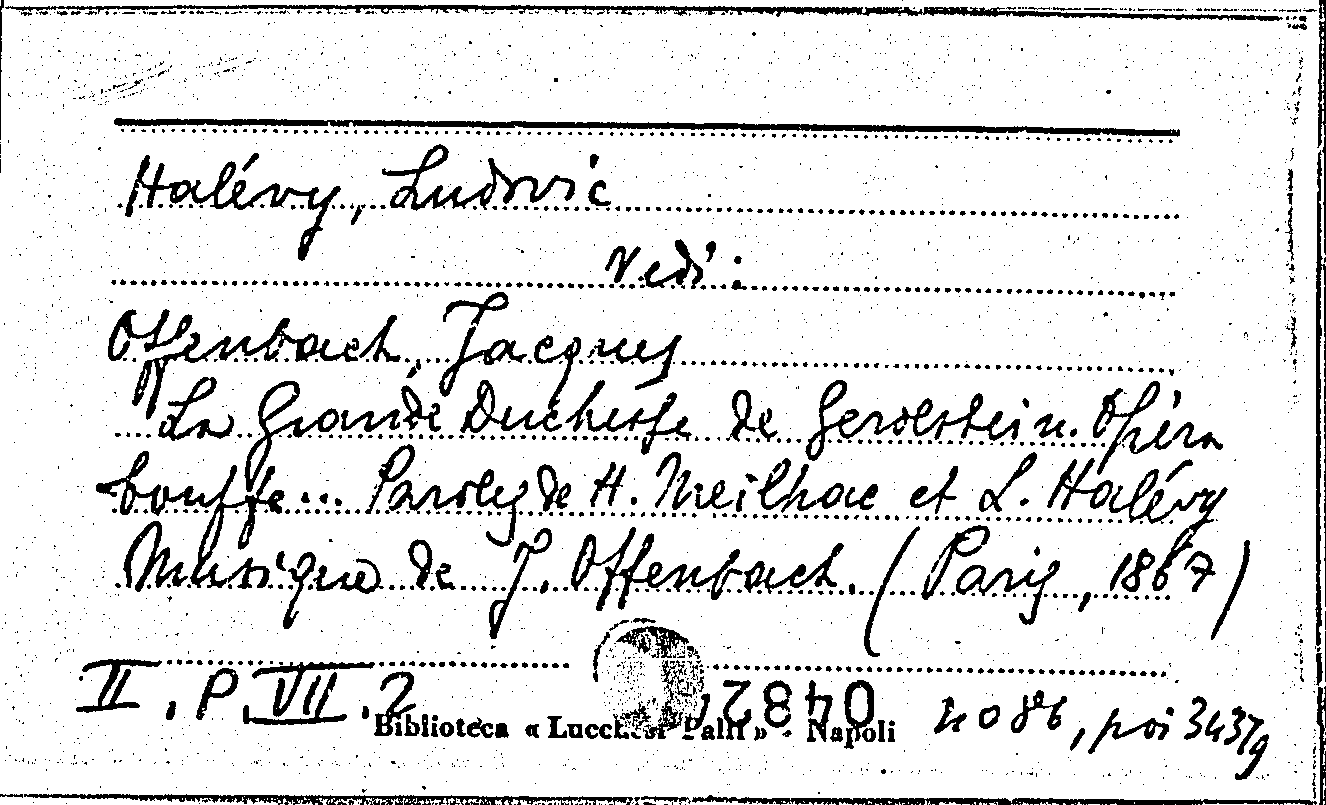 Halévy, Ludovic
Vedi:
Offenbach, Jacques
La Grande Duchesse de Gerolstein. Opéra
bouffe... Paroles de H. Meilhac et L. Halévy
Musique de J. Offenbach. (Paris, 1867)
II. P. VII. 2
Biblioteca « Lucchesi Palli » - Napoli
0482
poi